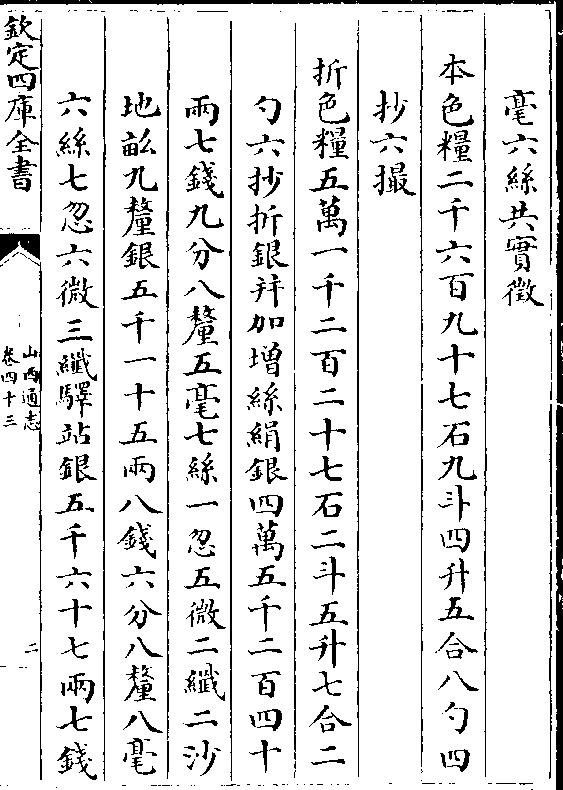 毫六絲共實徵
本色糧二千六百九十七石九斗四升五合八勺四
抄六撮
折色糧五萬一千二百二十七石二斗五升七合二
勺六抄折銀并加增絲絹銀四萬五千二百四十
兩七錢九分八釐五毫七絲一忽五微二纖二沙
地畝九釐銀五千一十五兩八錢六分八釐八毫
六絲七忽六微三纖驛站銀五千六十七兩七錢
欽定四庫全書
山西通志
卷四十三
二